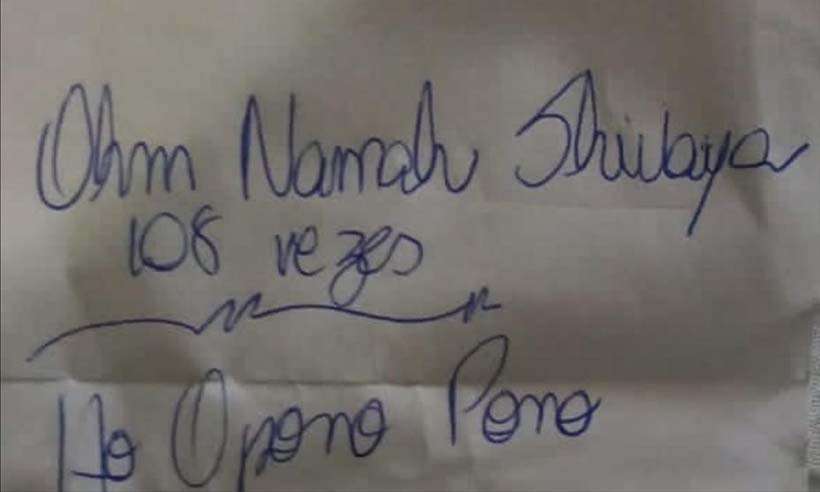 Ohm Namah Shivaya
108 vezes
Ho Opono Pono